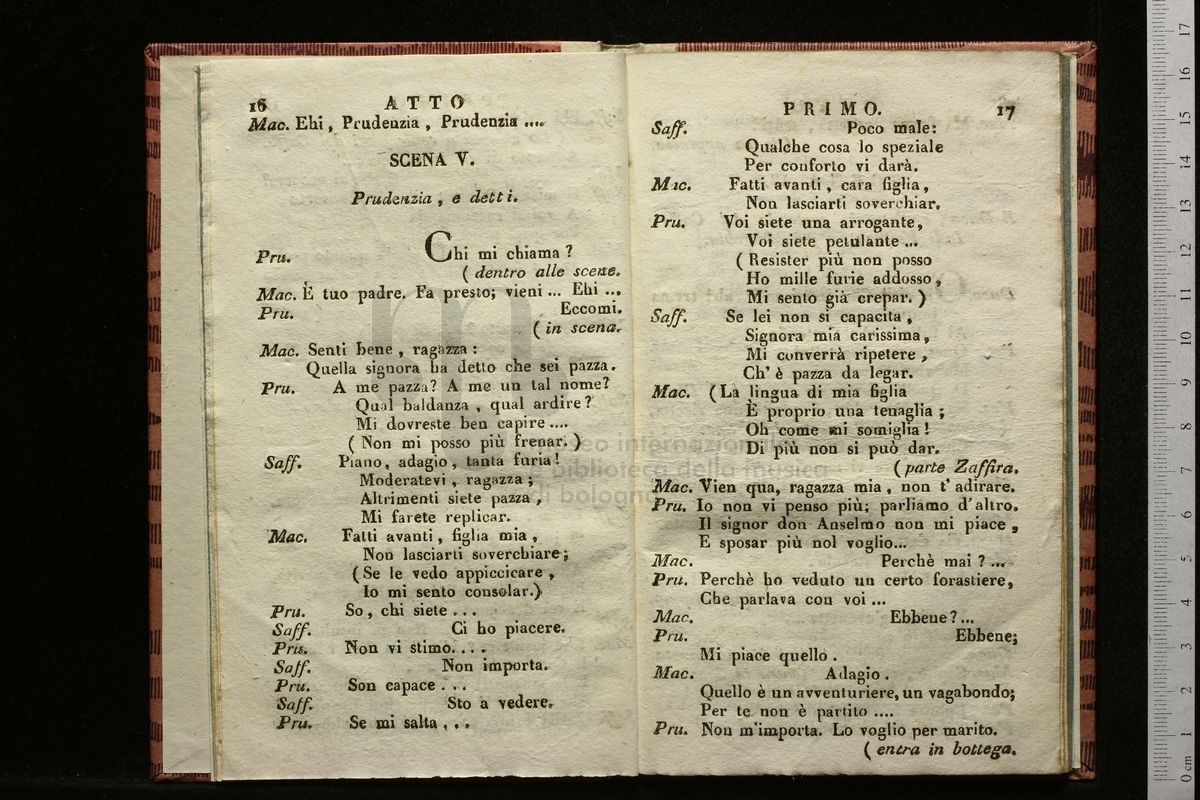 16 ATTO
Mac. Ehi, Prudenzia, Prudenzia ....
SCENA V.
Prudenzia, e detti.
Pru. Chi mi chiama?
( dentro alle scene.
Mac. È tuo padre. Fa presto; vieni ... Ehi ...
Pru. Eccomi.
( in scena.
Mac. Senti bene, ragazza:
Quella signora ha detto che sei pazza.
Pru. A me pazza? A me un tal nome?
Qual baldanza, qual ardire?
Mi dovreste ben capire ....
( Non mi posso più frenar. )
Saff. Piano, adagio, tanta furia!
Moderatevi, ragazza;
Altrimenti siete pazza,
Mi farete replicar.
Mac. Fatti avanti, figlia mia,
Non lasciarti soverchiare;
(Se le vedo appiccicare,
Io mi sento consolar.)
Pru. So, chi siete ...
Saff. Ci ho piacere.
Pru. Non vi stimo....
Saff. Non importa.
Pru. Son capace ...
Saff. Sto a vedere.
Pru. Se mi salta ...
PRIMO. 17
Saff. Poco male:
Qualche cosa lo speziale
Per conforto vi darà.
Mac. Fatti avanti, cara figlia,
Non lasciarti soverchiar.
Pru. Voi siete una arrogante,
Voi siete petulante ...
( Resister più non posso
Ho mille furie addosso,
Mi sento già crepar. )
Saff. Se lei non si capacita,
Signora mia carissima,
Mi converrà ripetere,
Ch' è pazza da legar.
Mac. (La lingua di mia figlia
È proprio una tenaglia;
Oh come mi somiglia!
Di più non si può dar.
( parte Zaffira.
Mac. Vien qua, ragazza mia, non t' adirare.
Pru. Io non vi penso più; parliamo d'altro.
Il signor don Anselmo non mi piace,
E sposar più nol voglio...
Mac. Perchè mai? ...
Pru. Perchè ho veduto un certo forastiere,
Che parlava con voi ...
Mac. Ebbene? ...
Pru. Ebbene;
Mi piace quello.
Mac. Adagio.
Quello è un avventuriere, un vagabondo;
Per te non è partito ....
Pru. Non m'importa. Lo voglio per marito.
( entra in bottega.
museo internazionale
e biblioteca della musica
di bologna
0 cm 1 2 3 4 5 6 7 8 9 10 11 12 13 14 15 16 17